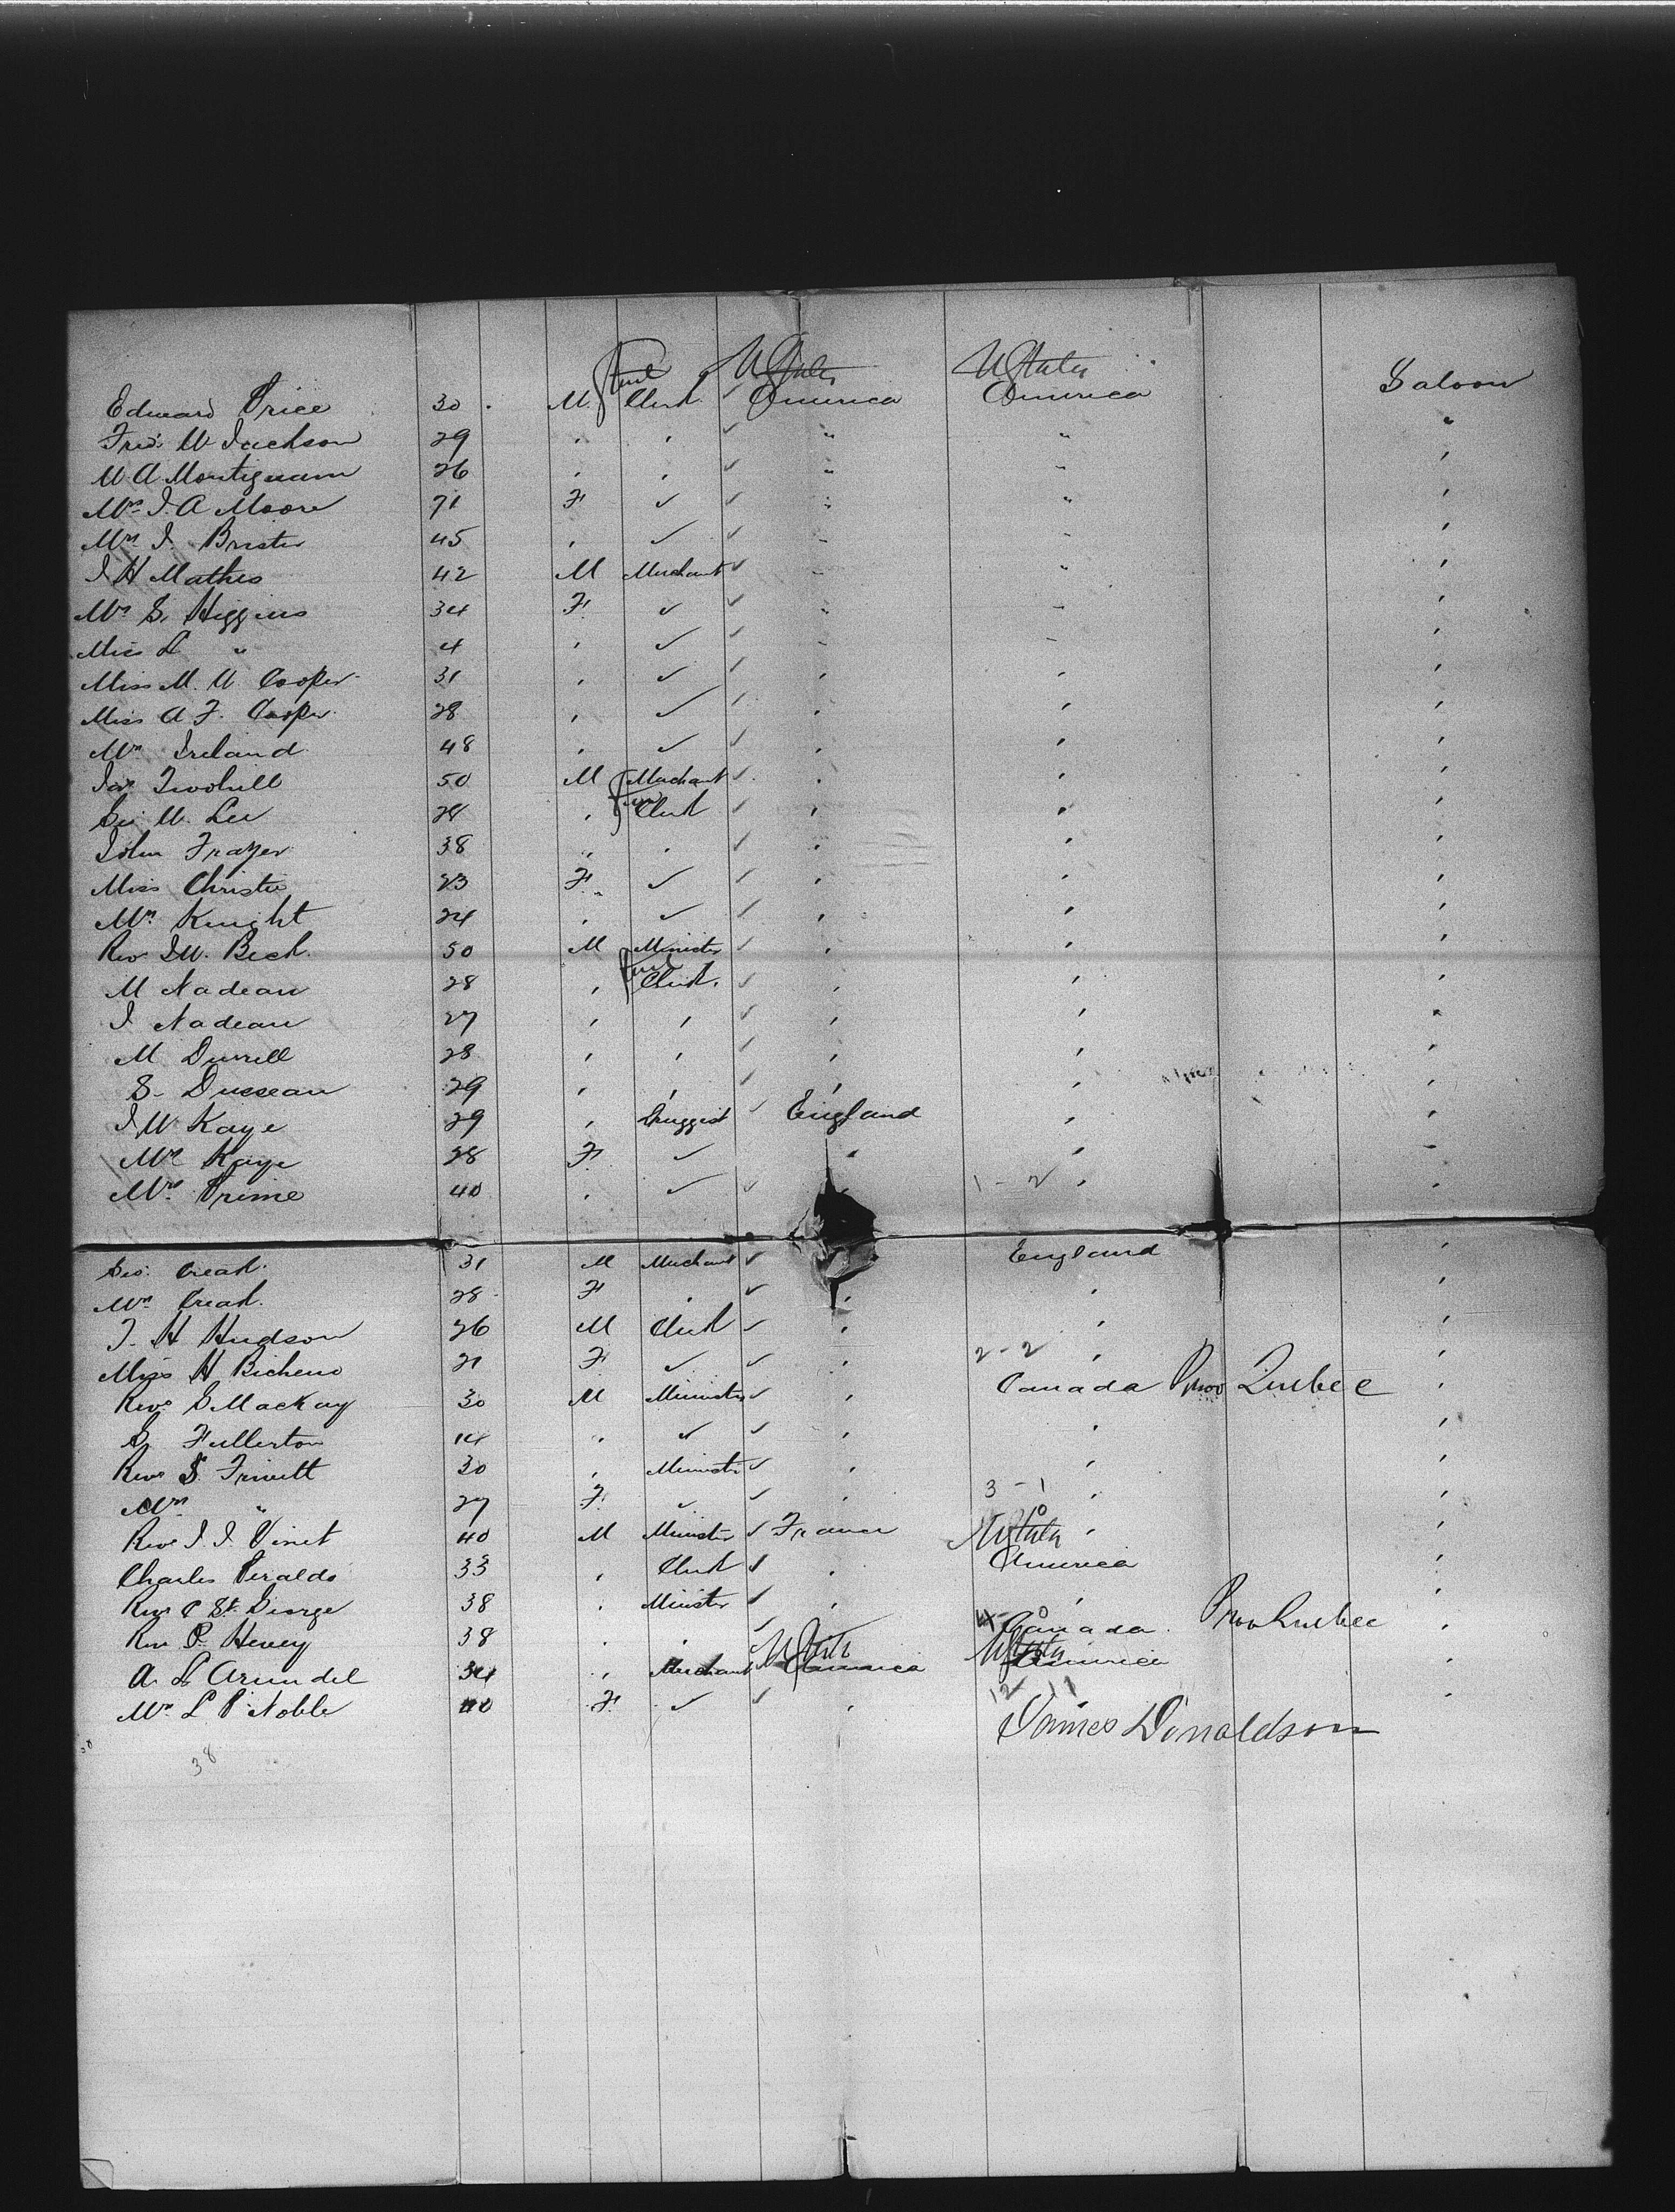 U States U States
Edward Price 30 M. Clerk America America Saloon
Fred. W Jackson 29 , , " " "
26 , , " " ,
Mrs J. A Moore 71 F " " ,
Mrs J. Brister 45 , " " ,
J H Mathes 42 M Merchant " " ,
Mrs S. Higgins 34 F " " ,
Miss L " 4 , " " ,
Miss M. W. Cooper 31 , , , ,
Miss A F. Cooper 28 , , , ,
Mrs Ireland 48 , , , ,
Jas Twohill 50 M Merchant , , ,
Geo. W. Lee 28 , Clerk , , ,
John Frazer 38 , , , , ,
Miss Christie 23 F , , ,
Mrs Knight 24 , , , ,
Rev J W. Beck 50 M Minister , , ,
M Nadeau 28 , Clerk , , ,
J Nadeau 27 , , , , "
M Durrell 28 , , , , ,
S. Dusseau 29 , , , , ,
J W Kaye 29 , Druggist England , ,
Mrs Kaye 28 F " , "
Mrs Prime 40 , , 1 - 2 , ,
Geo. Creak 31 M Merchant England ,
Mrs Creak. 28 F , , , ,
J. H Hudson 26 M Clerk , , ,
Miss H Bicheno 21 F , 2 - 2 , ,
Revd S MacKay 30 M Minister , Canada Prov Quebec ,
S. Fullerton 14 , , , ,
Revd S. Trivett 30 , Minister , , ,
Mrs " 27 F , 3 - 1 , ,
Revd J. J. Vinet 40 M Minister France U States , ,
Charles Peraldo 33 , Clerk , America ,
Revd C St. George 38 , Minister , , ,
Rev P. Hevey 38 , , 4 - 0 Canada. Prov Quebec ,
U States U States
A. L Arundel 34 , Merchant America America ,
Mrs L P Noble 40 F , 12 11 ,
James Donaldson
38